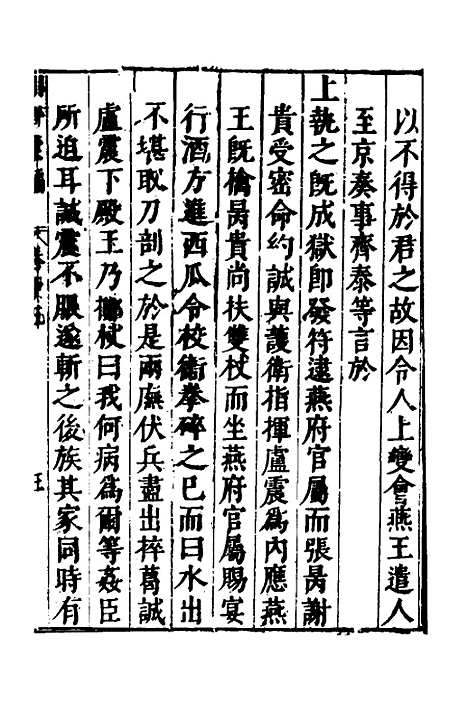 以不得於君之故因令人上變會燕王遣人
至京奏事齊泰等言於
上執之旣成獄卽發符逮燕府官屬而張昺謝
貴受密命約誠與護衛指揮盧震爲內應燕
王旣擒昺貴尚扶雙杖而坐燕府官屬賜宴
行酒方進西瓜令校衛拳碎之已而曰水出
不堪取刀剖之於是兩廡伏兵盡出捽葛誠
盧震下殿王乃擲杖曰我何病爲爾等姦臣
所迫耳誠震不服遂斬之後族其家同時有